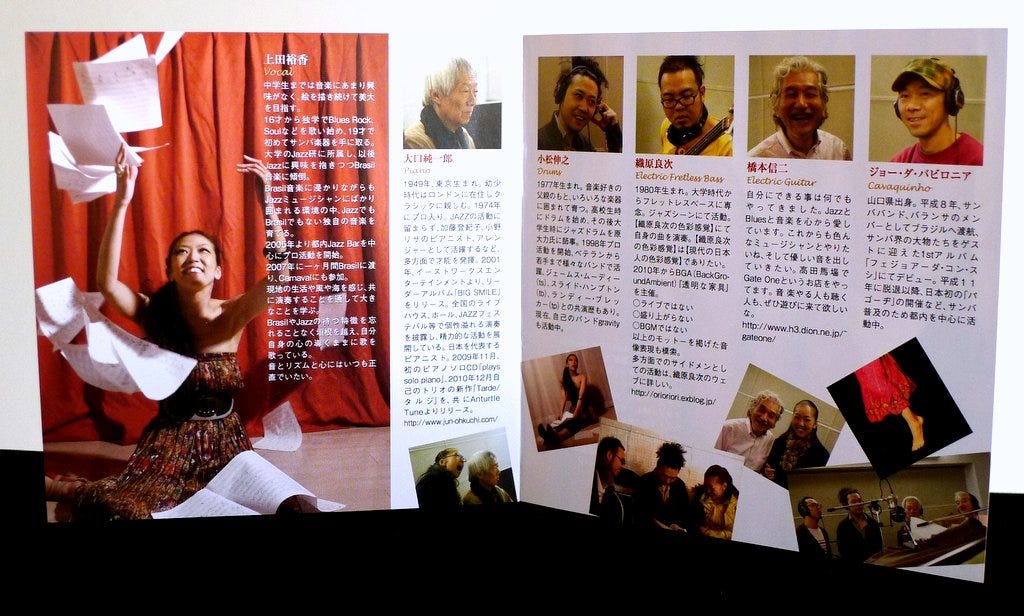 上田裕香
Vocal
中学生までは音楽にあまり興
味がなく、絵を描き続けて美大
を目指す。
16才から独学でBlues Rock,
Soulなどを歌い始め、19才で
初めてサンバ楽器を手に取る。
大学のJazz研に所属し、以後
Jazzに興味を抱きつつBrasil
音楽に傾倒。
Brasil音楽に浸かりながらも
Jazzミュージシャンにばかり
囲まれる環境の中、Jazzでも
Brasilでもない独自の音楽を
育てる。
2005年より都内Jazz Barを中
心にプロ活動を開始。
2007年に一ヶ月間Brasilに渡
り、Carnavalにも参加。
現地の生活や風や海を感じ、共
に演奏することを通して大き
なことを学ぶ。
BrasilやJazzの持つ特徴を忘
れることなく垣根を越え、自分
自身の心の導くままに歌を
歌っている。
音とリズムと心にはいつも正
直でいたい。
大口純一郎
Piano
1949年、東京生まれ。幼少
時代はロンドンに在住しク
ラシックに親しむ。1974年
にプロ入り。JAZZの活動に
留まらず、加藤登紀子、小野
リサのピアニスト、アレン
ジャーとして活躍するなど、
多方面で才能を発揮。2001
年、イーストワークスエン
ターテインメントより、リー
ダーアルバム「BIG SMILE」
をリリース。全国のライブ
ハウス、ホール、JAZZフェス
テバル等で個性溢れる演奏
を披露し、精力的な活動を展
開している。日本を代表する
ピアニスト。2009年11月、
初のピアノソロCD「plays
solo piano」、2010年12月自
己のトリオの新作「Tarde/
タルジ」を、共にAnturtle
Tuneよりリリース。
http://www.jun-ohkuchi.com/
小松伸之
Drums
1977年生まれ。音楽好きの
父親のもと、いろいろな楽器
に囲まれて育つ。高校生時
にドラムを始め、その後大
学生時にジャズドラムを原
大力氏に師事。1998年プロ
活動を開始、ベテランから
若手まで様々なバンドで活
躍。ジェームス・ムーディー
(ts)、スライド・ハンプトン
(tb)、ランディー・ブレッ
カー(tp)との共演歴もあり。
現在、自己のバンドgravity
も活動中。
織原良次
Electric Fretless Bass
1980年生まれ。大学時代か
らフレットレスベースに専
念。ジャズシーンにて活動。
【織原良次の色彩感覚】にて
自身の曲を演奏。【織原良次
の色彩感覚】は【現代の日本
人の色彩感覚】でありたい。
2010年からBGA（BackGro-
undAmbient）「透明な家具」
を主催。
○ライブではない
○盛り上がらない
○BGMではない
以上のモットーを掲げた音
像表現も模索。
多方面でのサイドメンとし
ての活動は、織原良次のウェ
ブに詳しい。
http://orioriori.exblog.jp/
橋本信二
Electric Guitar
自分にできる事は何でも
やってきました。Jazzと
Bluesと音楽を心から愛し
ています。これからも色ん
なミュージシャンとやりた
いね、そして優しい音を出し
ていきたい。高田馬場で
Gate Oneというお店をやっ
てます。音楽やる人も聴く
人も、ぜひ遊びに来て欲しい
な。
http://www.h3.dion.ne.jp/~
gateone/
ジョー・ダ・バビロニア
Cavaquinho
山口県出身。平成8年、サン
ババンド、バランサのメン
バーとしてブラジルへ渡航、
サンバ界の大物たちをゲス
トに迎えた1stアルバム
「フェジョアーダ・コン・ス
シ」にてデビュー。平成11
年に脱退以降、日本初の「パ
ゴーヂ」の開催など、サンバ
普及のため都内を中心に活
動中。